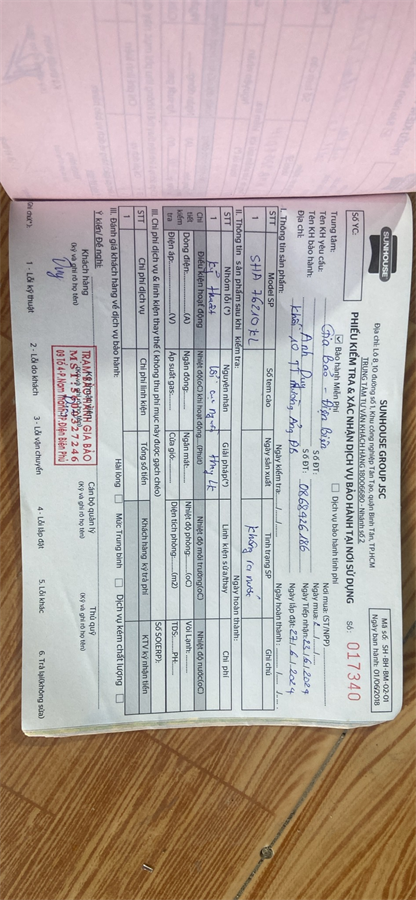 SUNHOUSE
SUNHOUSE GROUP JSC
Địa chỉ: Lô 8,10 Đường số 1, Khu công nghiệp Tân Tạo, quận Bình Tân, TP.HCM
TRUNG TÂM TƯ VẤN KHÁCH HÀNG 18006680 - Nhánh số 2
Mã số: SH-BH-BM-02-01
Ngày ban hành: 01/06/2018
Số YC:
PHIẾU KIỂM TRA & XÁC NHẬN DỊCH VỤ BẢO HÀNH TẠI NƠI SỬ DỤNG
Số: 017340
Bảo hành Miễn Phí
Dịch vụ bảo hành tính phí
Trung tâm: Gia Bảo - Điện Biên
Nơi mua: (ST/NPP)
Tên KH yêu cầu:
Số ĐT:
Ngày mua:
Tên KH bảo hành: Anh Duy
Số ĐT: 0868926186
Ngày Tiếp nhận: 23/6/2024
Địa chỉ:
Ngày lắp đặt: 27/6/2024
I. Thông tin sản phẩm:
Ngày kiểm tra:
Ngày hoàn thành:
STT Model SP Số tem cào Ngày sản xuất Tình trạng SP Ghi chú
1 SHA 76210KL không ra nước
II. Thông tin sản phẩm sau khi kiểm tra:
Ngày hoàn thành:
STT Nhóm lỗi (*) Nguyên nhân Giải pháp(*) Linh kiện sửa/thay Chi phí
1 kỹ thuật
Chi tiết kiểm tra
Điều kiện hoạt động Nhiệt độ(oC) khi hoạt động....(Phút) Nhiệt độ môi trường(oC) Nhiệt độ nước(oC)
Dòng điện:......(A) Ngăn đông:...... Ngăn mát:...... Nhiệt độ phòng:......(oC) Vòi Lạnh:......
Điện áp:......(V) Áp suất gas:...... Cửa gió:...... Diện tích phòng:......(m2) TDS:......PH:......
III. Chi phí dịch vụ & linh kiện thay thế ( không thu phí mục này được gạch chéo)
Số SO(ERP):
STT Chi phí dịch vụ Chi phí linh kiện Tổng số tiền Khách hàng ký trả phí KTV ký nhận tiền
1
III. Đánh giá khách hàng về dịch vụ bảo hành:
Hài lòng
Mức Trung bình
Dịch vụ kém chất lượng
Ý kiến/ Đề nghị:
Khách hàng
(ký và ghi rõ họ tên)
Cán bộ quản lý
(Ký và ghi rõ họ tên)
Thủ quỹ
(ký và ghi rõ họ tên)
TRẠM BẢO HÀNH GIA BẢO
Duy
1 - Lỗi kỹ thuật 2 - Lỗi do khách 3 - Lỗi vận chuyển 4 - Lỗi lắp đặt 5. Lỗi khác 6. Trả lại(không sửa)